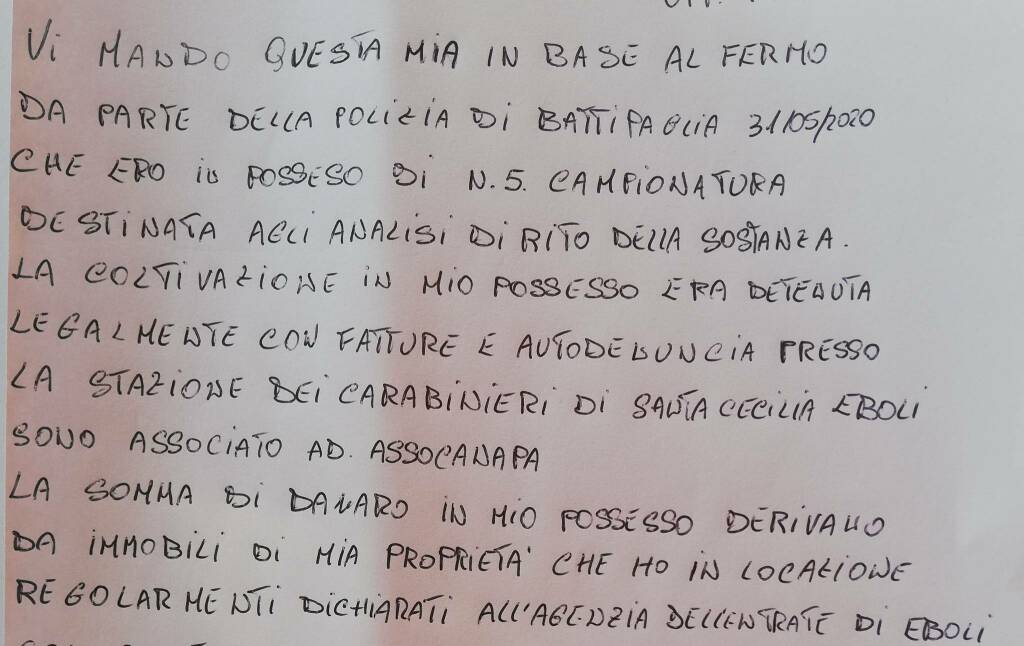 VI MANDO QUESTA MIA IN BASE AL FERMO
DA PARTE DELLA POLIZIA DI BATTIPAGLIA 31/05/2020
CHE ERO IN POSSESO DI N.5. CAMPIONATURA
DESTINATA AGLI ANALISI DI RITO DELLA SOSTANZA.
LA COLTIVAZIONE IN MIO POSSESSO ERA DETENUTA
LEGALMENTE CON FATTURE E AUTODENUNCIA PRESSO
LA STAZIONE DEI CARABINIERI DI SANTA CECILIA EBOLI
SONO ASSOCIATO AD. ASSOCANAPA
LA SOMMA DI DANARO IN MIO POSSESSO DERIVANO
DA IMMOBILI DI MIA PROPRIETA' CHE HO IN LOCAZIONE
REGOLARMENTI DICHIARATI ALL'AGENZIA DELLENTRATE DI EBOLI